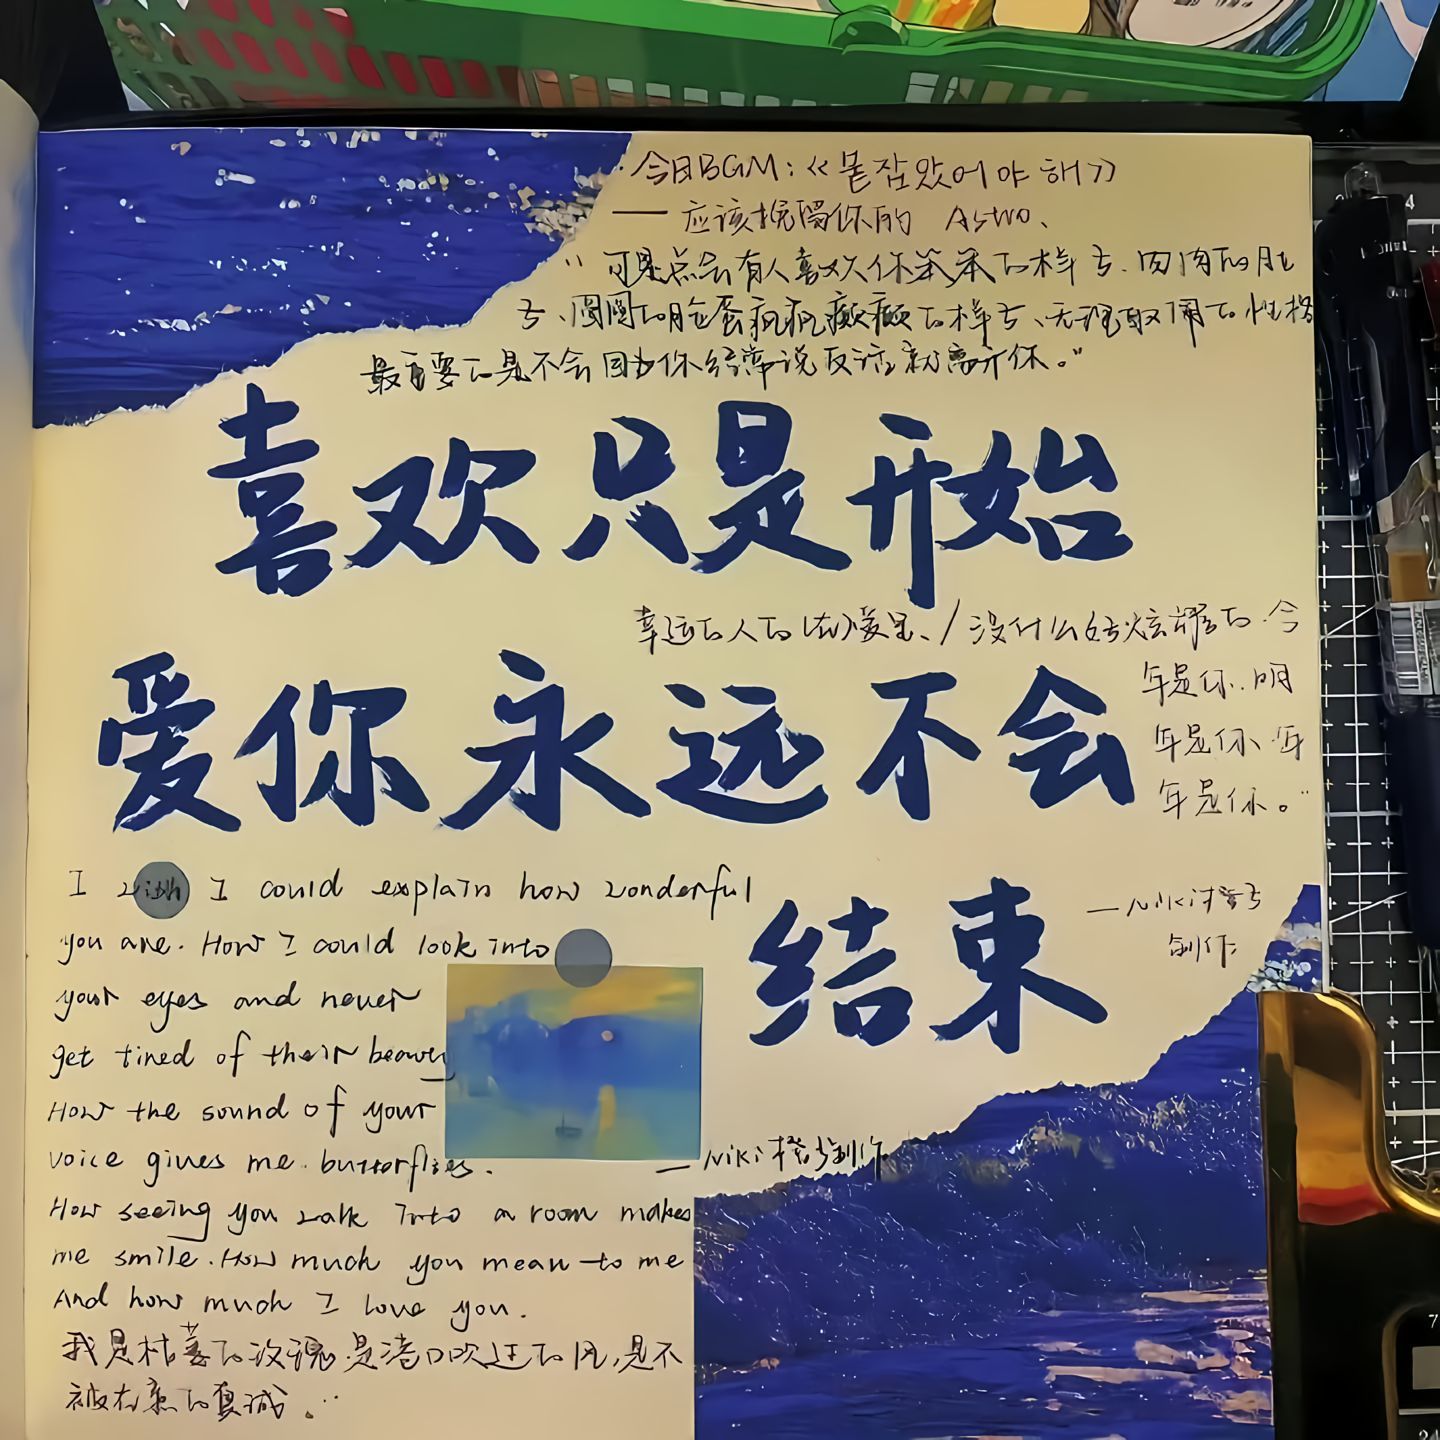 今日BGM:《붙잡았어야 해》
——应该挽留你的 Astro、
“可是总会有人喜欢你笨笨的样子、肉肉的肚
子、圆圆的脸蛋疯疯癫癫的样子、无理取闹的性格
最重要的是不会因为你经常说反话就离开你。”
喜欢只是开始
幸运的人的 被爱里、/没什么好炫耀的·今
年是你、明
年是你、年
年是你。”
爱你永远不会
结束
—Niki橙子
创作
I wish I could explain how wonderful
you are. How I could look into
your eyes and never
get tired of their beauty
How the sound of your
voice gives me butterflies.
—Niki橙子创作
How seeing you walk into a room makes
me smile. How much you mean to me
And how much I love you.
我是枯萎的玫瑰是港口吹过的风,是不
被在意的真诚。